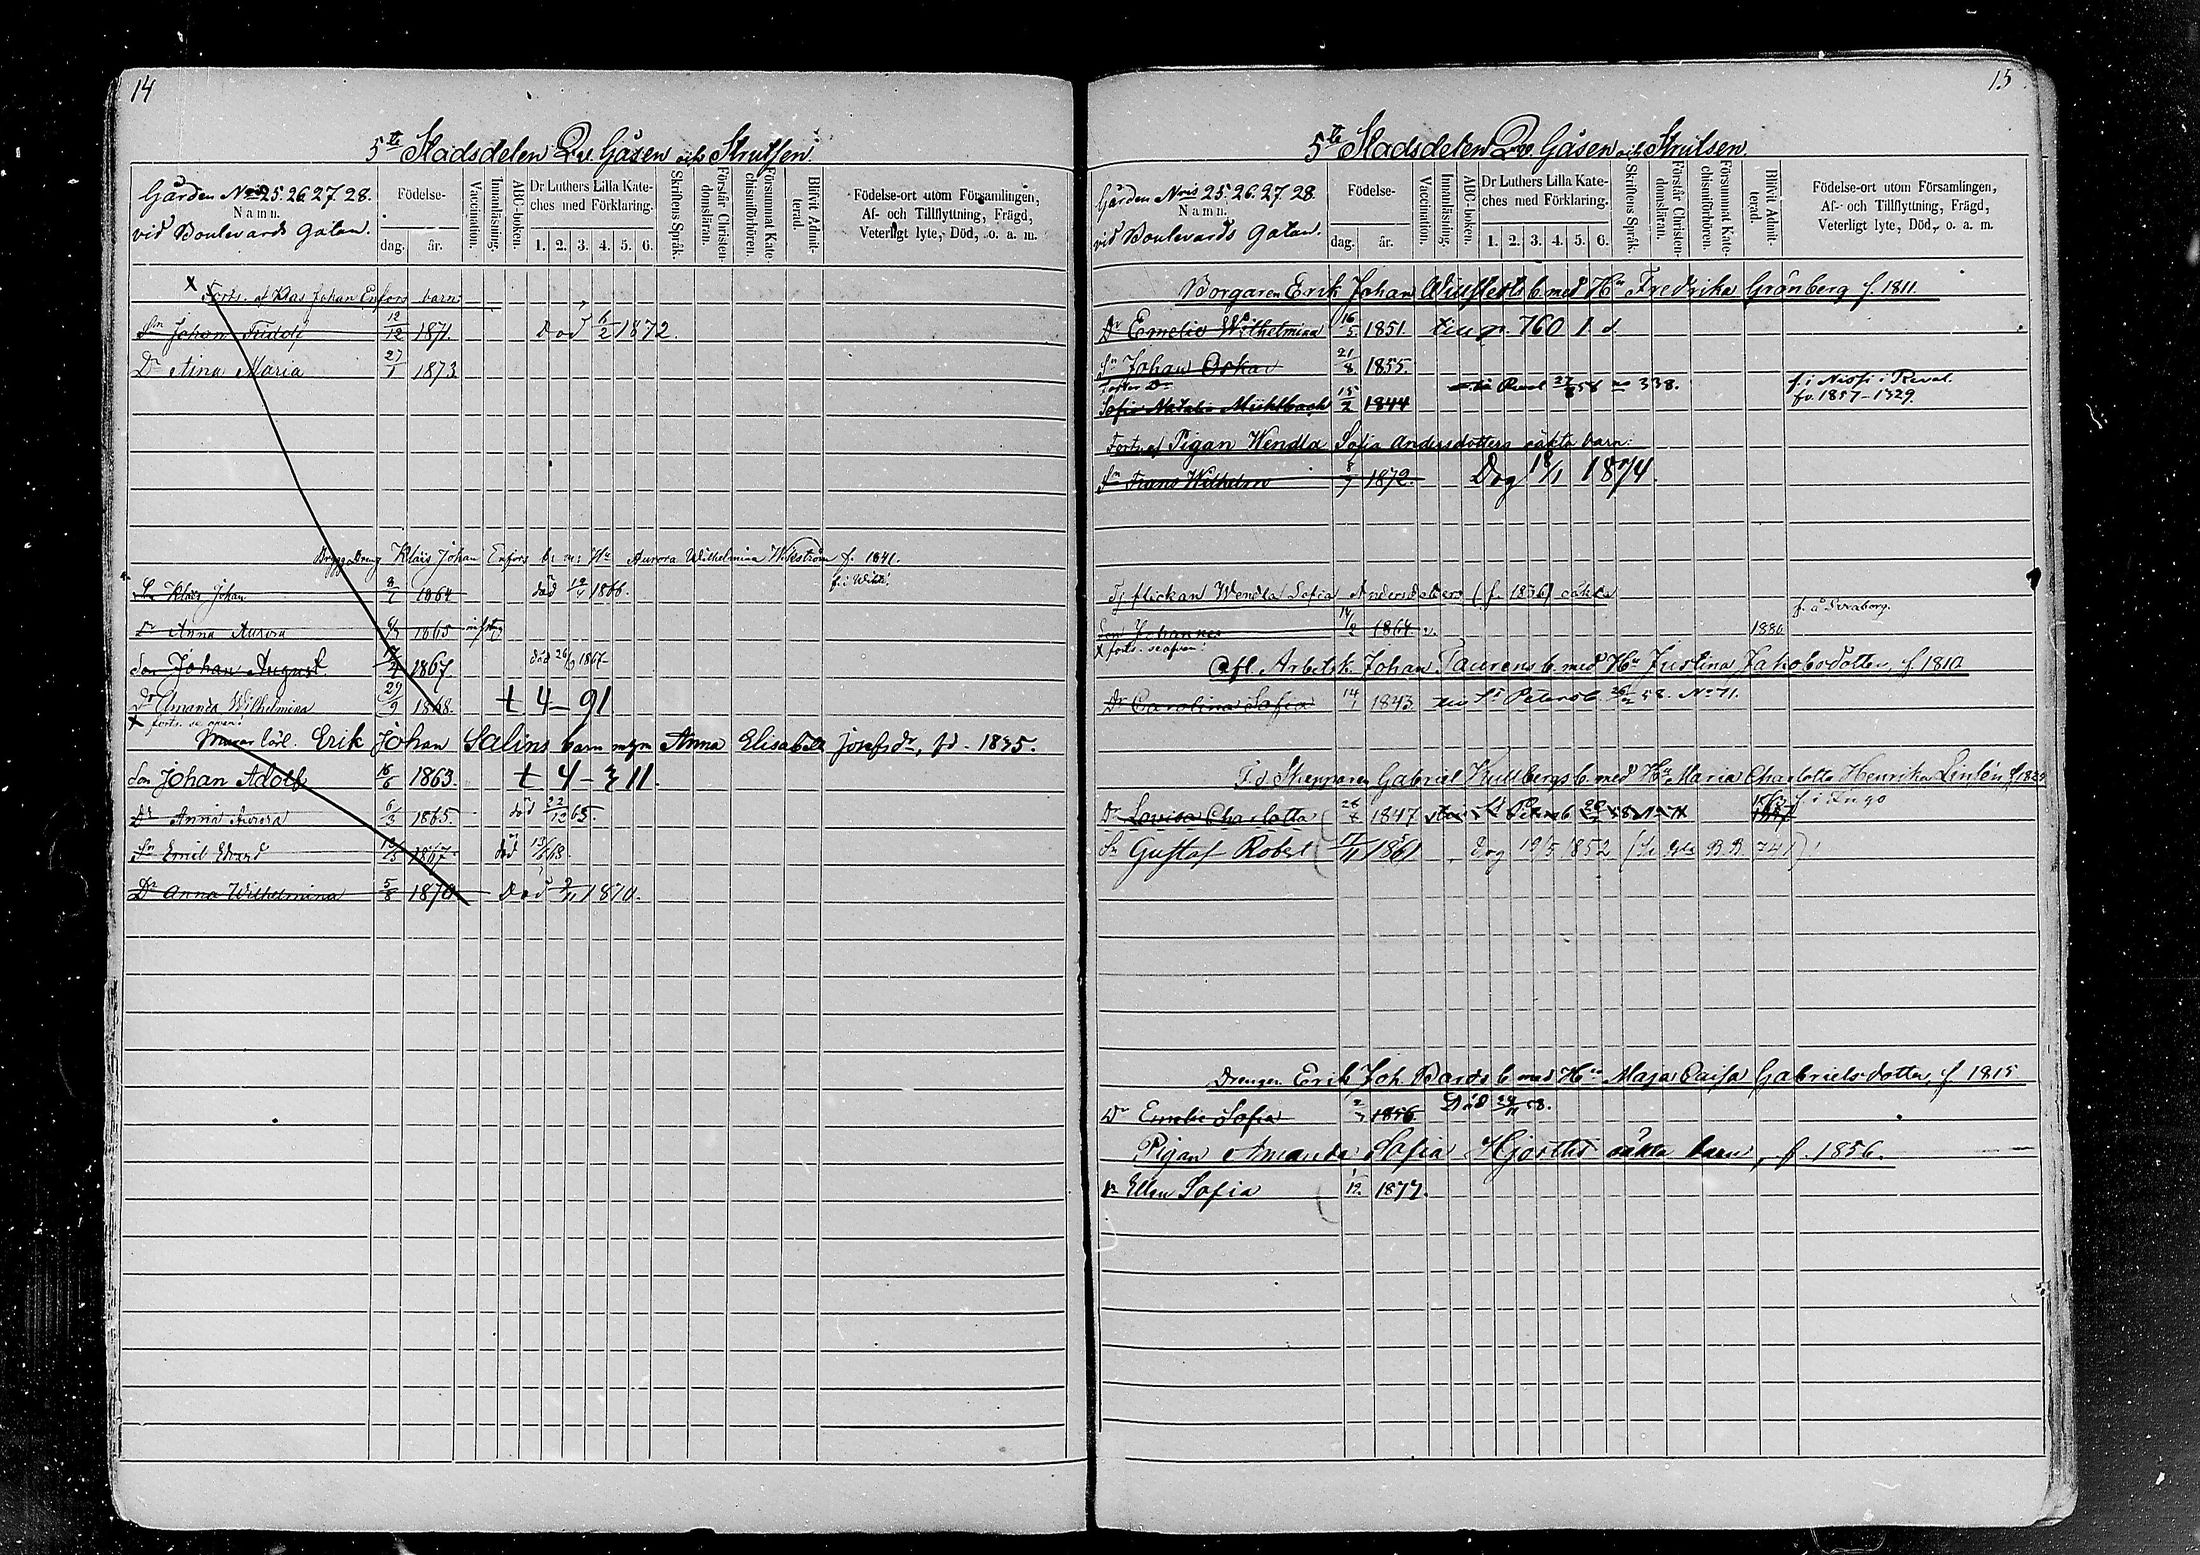 14
5te Stadsdelen Qv. Gåsen och Strutsen.
Gården Nris 25. 26. 27. 28.
Namn.
vid Boulevards Gatan.
Födelse-
dag. år.
Vaccination.
Innanläsning.
ABC-boken.
Dr Luthers Lilla Kate-
ches med Förklaring.
1. 2. 3. 4. 5. 6.
Skriftens Språk.
Förstår Christen-
domsläran.
Försummat Kate-
chismiförhören.
Blifvit Admit-
terad.
Födelse-ort utom Församlingen,
Af- och Tillflyttning, Frägd,
Veterligt lyte, Död, o. a. m.
x Forts. af Klas Johan Enfors barn:
Sn Johan Fridolf 12/12 1871. Död 6/2 1872.
Dr Aina Maria 27/1 1873
Dreng Klais Johan Enfors b. m. Hu Aurora Wilhelmina Wikström f. 1841.
Sn Klais Johan 1864 död 1866. f. i
Dr Anna Aurora 1865
Son Johan August 1867. död 26/9 1867
Dr Amanda Wilhelmina 29/9 1868. † 4 - 91
x forts. se ofvan!
Erik Johan Salins barn m Anna Elisabeth Josefsdr, fd. 1835.
Son Johan Adolf 16/6 1863. † 4 - 11.
Dr Anna Aurora 6/3 1865. död 22/12 65.
Sn Emil Edvard 1867. död 13/6 68.
Dr Anna Wilhelmina 5/8 1870 Död 1870.
15
5te Stadsdelen Qv. Gåsen och Strutsen.
Gården Nris 25. 26. 27. 28.
Namn.
vid Boulevards Gatan.
Födelse-
dag. år.
Vaccination.
Innanläsning.
ABC-boken.
Dr Luthers Lilla Kate-
ches med Förklaring.
1. 2. 3. 4. 5. 6.
Skriftens Språk.
Förstår Christen-
domsläran.
Försummat Kate-
chismiförhören.
Blifvit Admit-
terad.
Födelse-ort utom Församlingen,
Af- och Tillflyttning, Frägd,
Veterligt lyte, Död, o. a. m.
Borgaren Erik Johan b. med Hu Fredrika Grönberg f. 1811.
Dr Emelie Wilhelmina 16/5 1851. 760 1. d.
Sn Johan Oskar 21/8 1855.
Foster Dr
Sofia Natalia Mühlbach 15/2 1844 Reval 58 no 338. f. i Nissi i Reval.
fv. 1857 - 1329.
Forts. af Pigan Wendla Sofia Andersdotters oäkta barn:
Sn Frans Wilhelm 8/7 1872. Dog 18/1 1874.
Tj flickan Wendla Sofia Andersdotters (f. 1836) oäkta
Son Johannes 14/2 1864. v. 1880 f. å Sveaborg.
x forts. se ofvan!
Afl. Arbetsk. Johan Taurens b. med Hu Justina Jakobsdotter, f. 1810
Dr Carolina Sofia 14/1 1843 St Petersb. 58. No 71.
Fd Skepparen Gabriel Kullbergs b. med Hu Maria Charlotta Henrika Linlén f.
Dr Lovisa Charlotta 1847 f. i Ingo
Sn Gustaf Robert 1851 dog 19/5 1852 (Se Gla B. B. 741)
Drengen Erik Joh. Bards b. med Hu Maja Caisa Gabrielsdotter, f. 1815
Dr Emelie Sofia 1856 Död 58.
Pigan Amanda Sofia Hjorths oäkta barn, f. 1856.
Dr Ellen Sofia 1/12. 1877.